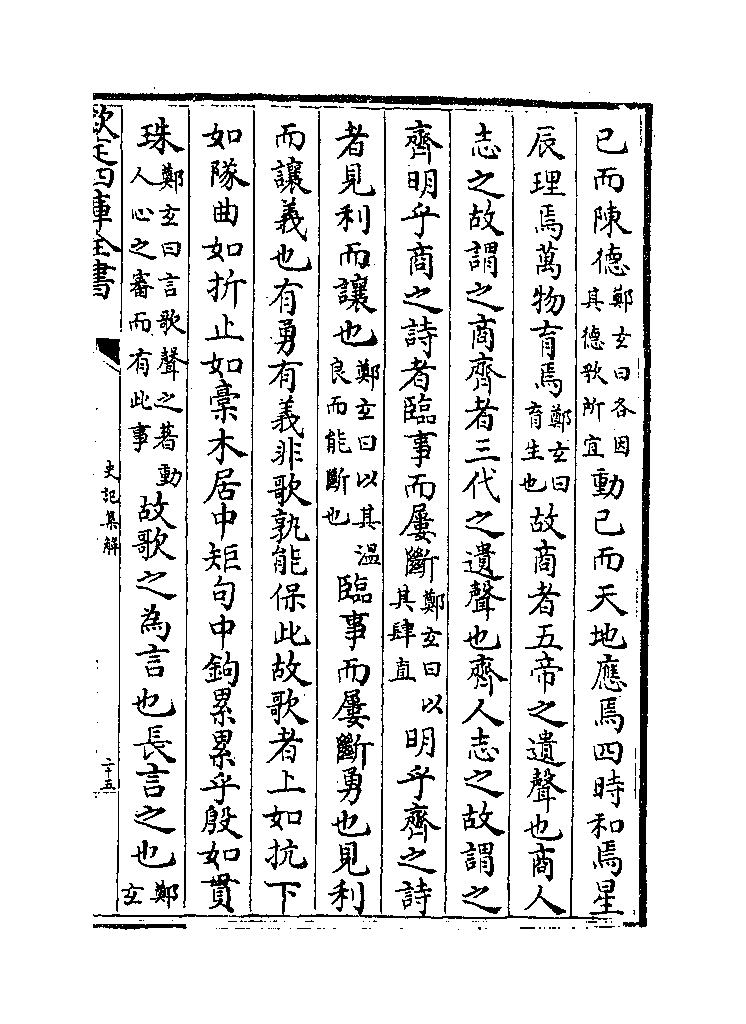 已而陳德鄭玄曰各因其德歌所宜動已而天地應焉四時和焉星
辰理焉萬物育焉鄭玄曰育生也故商者五帝之遺聲也商人
志之故謂之商齊者三代之遺聲也齊人志之故謂之
齊明乎商之詩者臨事而屢斷鄭玄曰以其肆直明乎齊之詩
者見利而讓也鄭玄曰以其溫良而能斷也臨事而屢斷勇也見利
而讓義也有勇有義非歌孰能保此故歌者上如抗下
如隊曲如折止如槀木居中矩句中鉤累累乎殷如貫
珠鄭玄曰言歌聲之著動人心之審而有此事故歌之為言也長言之也鄭玄
欽定四庫全書
史記集解
二十五